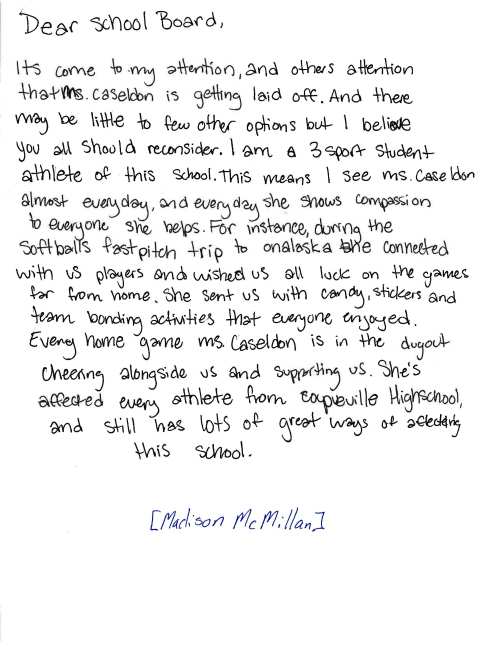 Dear School Board,
Its come to my attention, and others attention
that Ms. Caseldon is getting laid off. And there
may be little to few other options but I believe
you all should reconsider. I am a 3 sport student
athlete of this school. This means I see ms. Caseldon
almost everyday, and everyday she shows compassion
to everyone she helps. For instance, during the
Softballs fastpitch trip to onalaska she connected
with us players and wished us all luck on the games
far from home. She sent us with candy, stickers and
team bonding activities that everyone enjoyed.
Every home game ms. Caseldon is in the dugout
cheering alongside us and supporting us. She's
affected every athlete from coupeville Highschool,
and still has lots of great ways of affecting
this school.
[Madison McMillan]